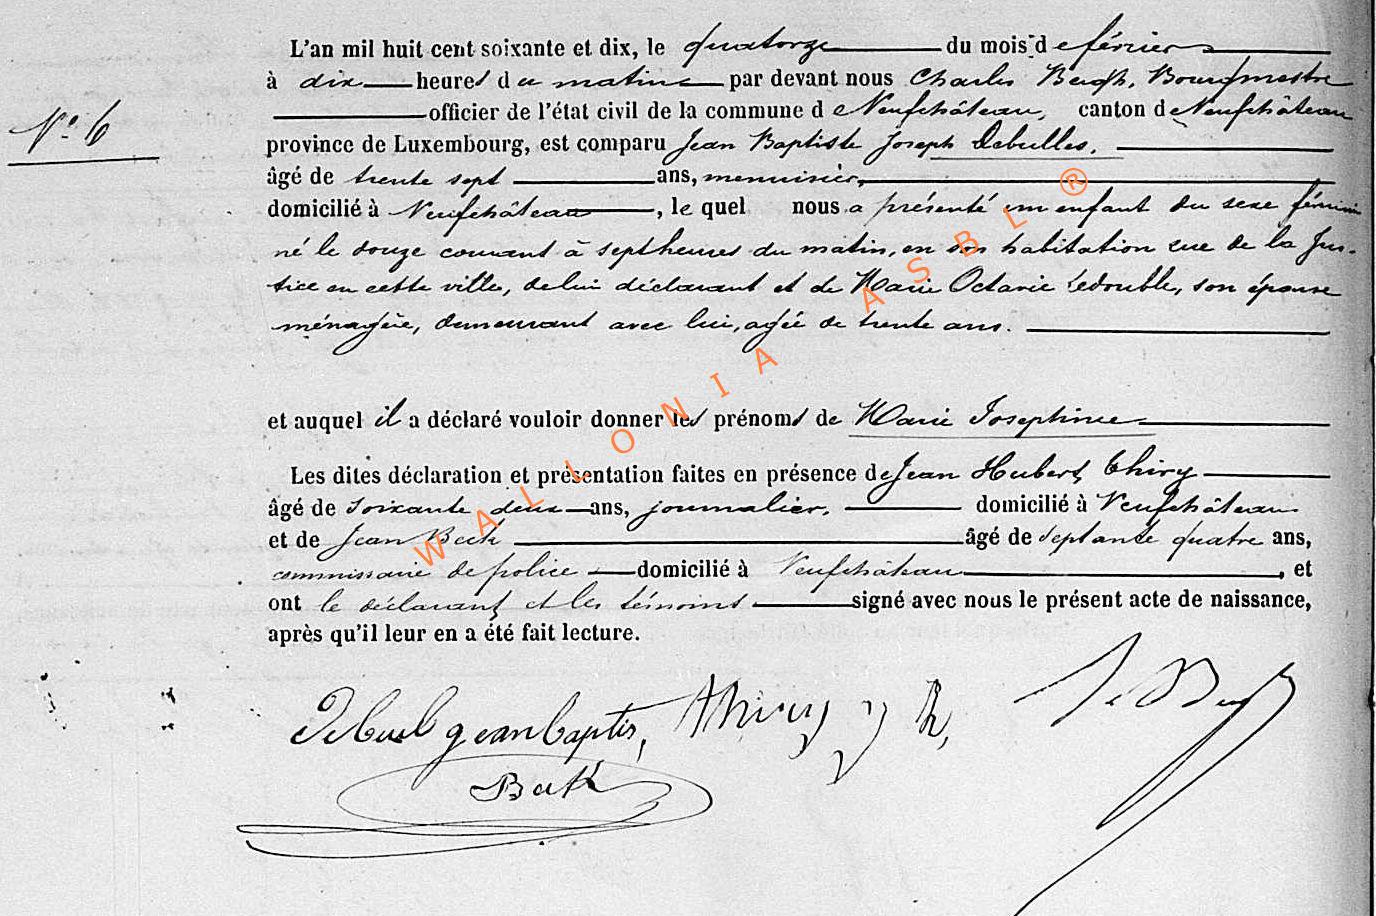 L'an mil huit cent soixante et dix, le quatorze du mois de février
à dix heures du matin par devant nous Charles Bergh, Bourgmestre
officier de l'état civil de la commune de Neufchâteau, canton de Neufchâteau
N° 6
province de Luxembourg, est comparu Jean Baptiste Joseph Debulles,
âgé de trente sept ans, menuisier,
domicilié à Neufchâteau, le quel nous a présenté un enfant du sexe féminin
né le douze courant à sept heures du matin, en son habitation rue de la Jus-
tice en cette ville, de lui déclarant et de Marie Octavie Ledouble, son épouse
ménagère, demeurant avec lui, agée de trente ans.
et auquel il a déclaré vouloir donner les prénoms de Marie Josephine
Les dites déclaration et présentation faites en présence de Jean Hubert Thiry
âgé de soixante deux ans, journalier, domicilié à Neufchâteau
et de Jean Beck âgé de septante quatre ans,
commissaire de police domicilié à Neufchâteau, et
ont le déclarant et les témoins signé avec nous le présent acte de naissance,
après qu'il leur en a été fait lecture.
Thiry
Beck
WALLONIA ASBL ®